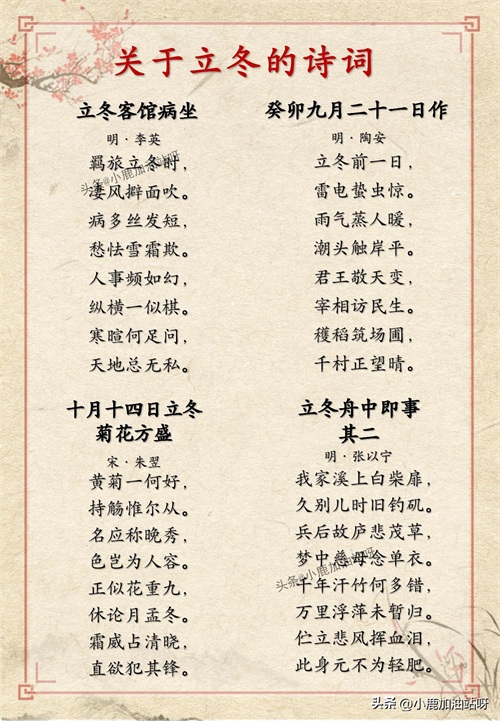 关于立冬的诗词
立冬客馆病坐
明·李英
羁旅立冬时，
凄风擗面吹。
病多丝发短，
愁怯雪霜欺。
人事频如幻，
纵横一似棋。
寒暄何足问，
天地总无私。
癸卯九月二十一日作
明·陶安
立冬前一日，
雷电蛰虫惊。
雨气蒸人暖，
潮头触岸平。
君王敬天变，
宰相访民生。
穫稻筑场圃，
千村正望晴。
十月十四日立冬
菊花方盛
宋·朱翌
黄菊一何好，
持觞惟尔从。
名应称晚秀，
色岂为人容。
正似花重九，
休论月孟冬。
霜威占清晓，
直欲犯其锋。
立冬舟中即事
其二
明·张以宁
我家溪上白柴扉，
久别儿时旧钓矶。
兵后故庐悲茂草，
梦中慈母念单衣。
千年汗竹何多错，
万里浮萍未暂归。
伫立悲风挥血泪，
此身元不为轻肥。
头条@小鹿加油站呀
头条@小鹿加油站呀
头条 @小鹿加油站呀